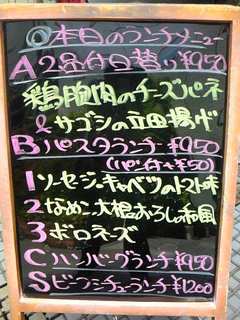 ◎本日のランチメニュー
A 2品付日替り ¥950
鶏胸肉のチーズパネ
& サゴシの立田揚げ
B パスタランチ ¥950
(パン付+¥50)
1 ソーセージとキャベツのトマト味
2 なめこ、大根おろしの和風
3 ボロネーズ
C ハンバーグランチ ¥950
S ビーフシチューランチ ¥1200